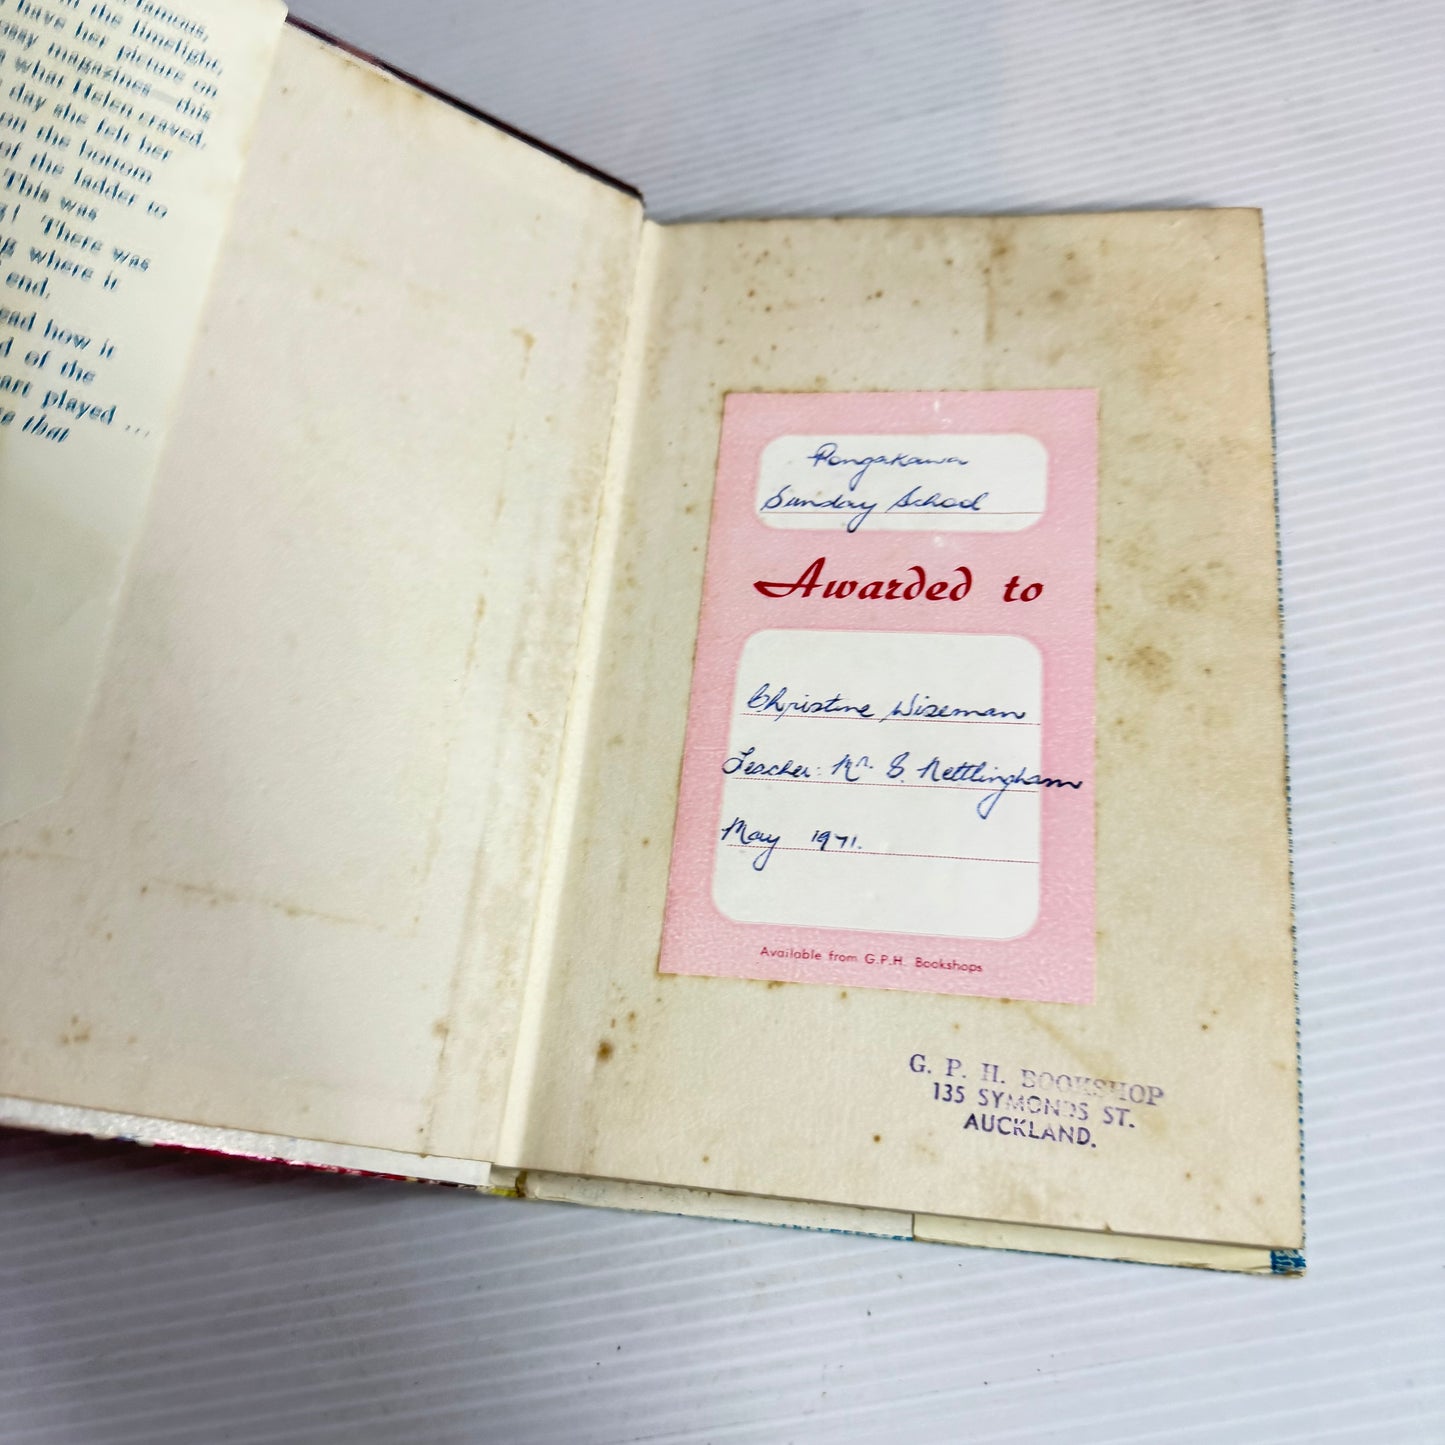 famous,
the limelight,
have her picture on
magazines—this
what Helen craved.
day she felt her
on the bottom
of the ladder to
This was
There was
where it
end.
how it
of the
played ...
that
Pongakawa
Sunday School
Awarded to
Christine Wiseman
Teacher: Mr. S. Nettlingham
May 1971.
Available from G.P.H. Bookshops
G. P. H. BOOKSHOP
135 SYMONDS ST.
AUCKLAND.